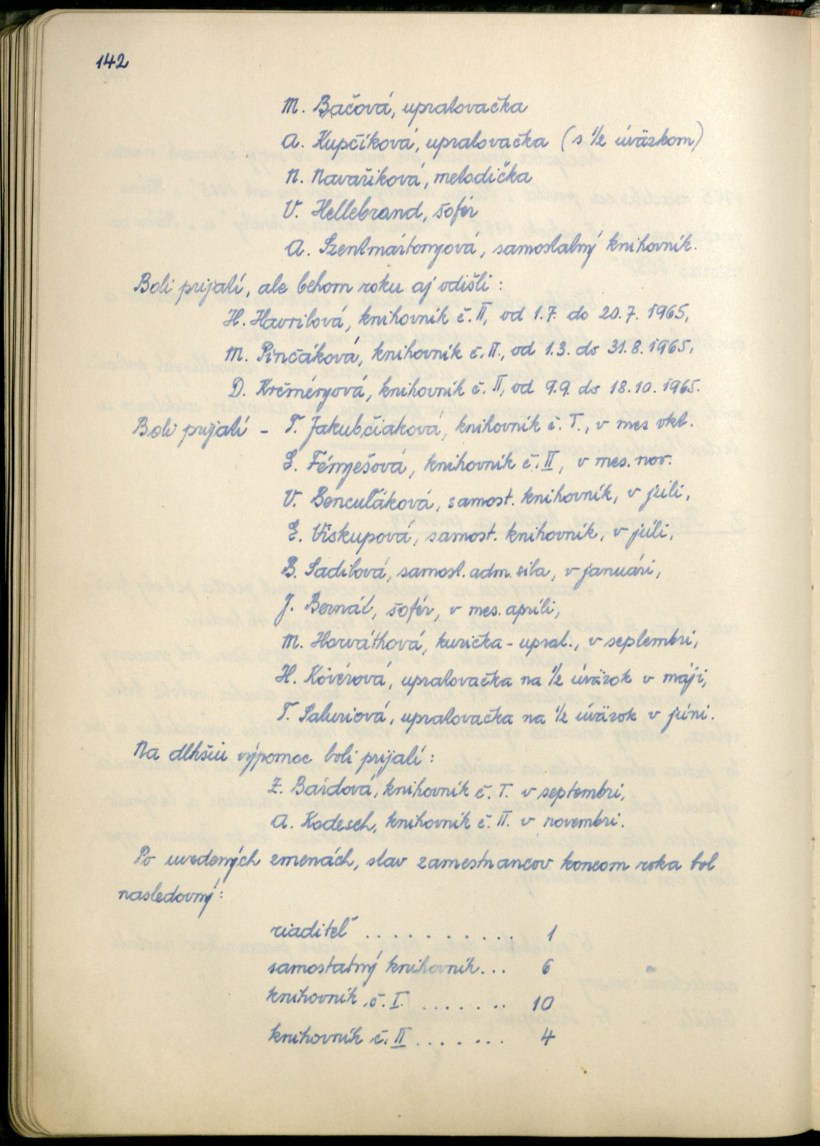 142
M. Bačová, upratovačka
A. Kupčíková, upratovačka (s ½ úväzkom)
N. Navaříková, metodička
V. Hellebrand, šofér
A. Szentmártonyová, samostatný knihovník.
Boli prijatí, ale behom roku aj odišli:
H. Havrilová, knihovník č. II, od 1.7. do 20.7. 1965,
M. Pinčáková, knihovník č. II., od 1.3. do 31.8. 1965,
D. Krčméryová, knihovník č. II, od 9.9. do 18.10. 1965.
Boli prijatí - T. Jakubčiaková, knihovník č. I., v mes okt.
E. Fényešová, knihovník č. II, v mes. nov.
V. Benculáková, samost. knihovník, v júli,
E. Viskupová, samost. knihovník, v júli,
B. Sadilová, samost. adm. sila, v januári,
J. Bernál, šofér, v mes. apríli,
M. Horváthová, kurička - uprat., v septembri,
H. Kóverová, upratovačka na ½ úväzok v máji,
T. upratovačka na ½ úväzok v júni.
Na dlhšiu výpomoc boli prijatí:
Z. Bardová, knihovník č. I. v septembri,
A. Kodesch, knihovník č. II. v novembri.
Po uvedených zmenách, stav zamestnancov koncom roka bol
nasledovný:
riaditeľ .......... 1
samostatný knihovník... 6
knihovník č. I. ....... 10
knihovník č. II ...... 4